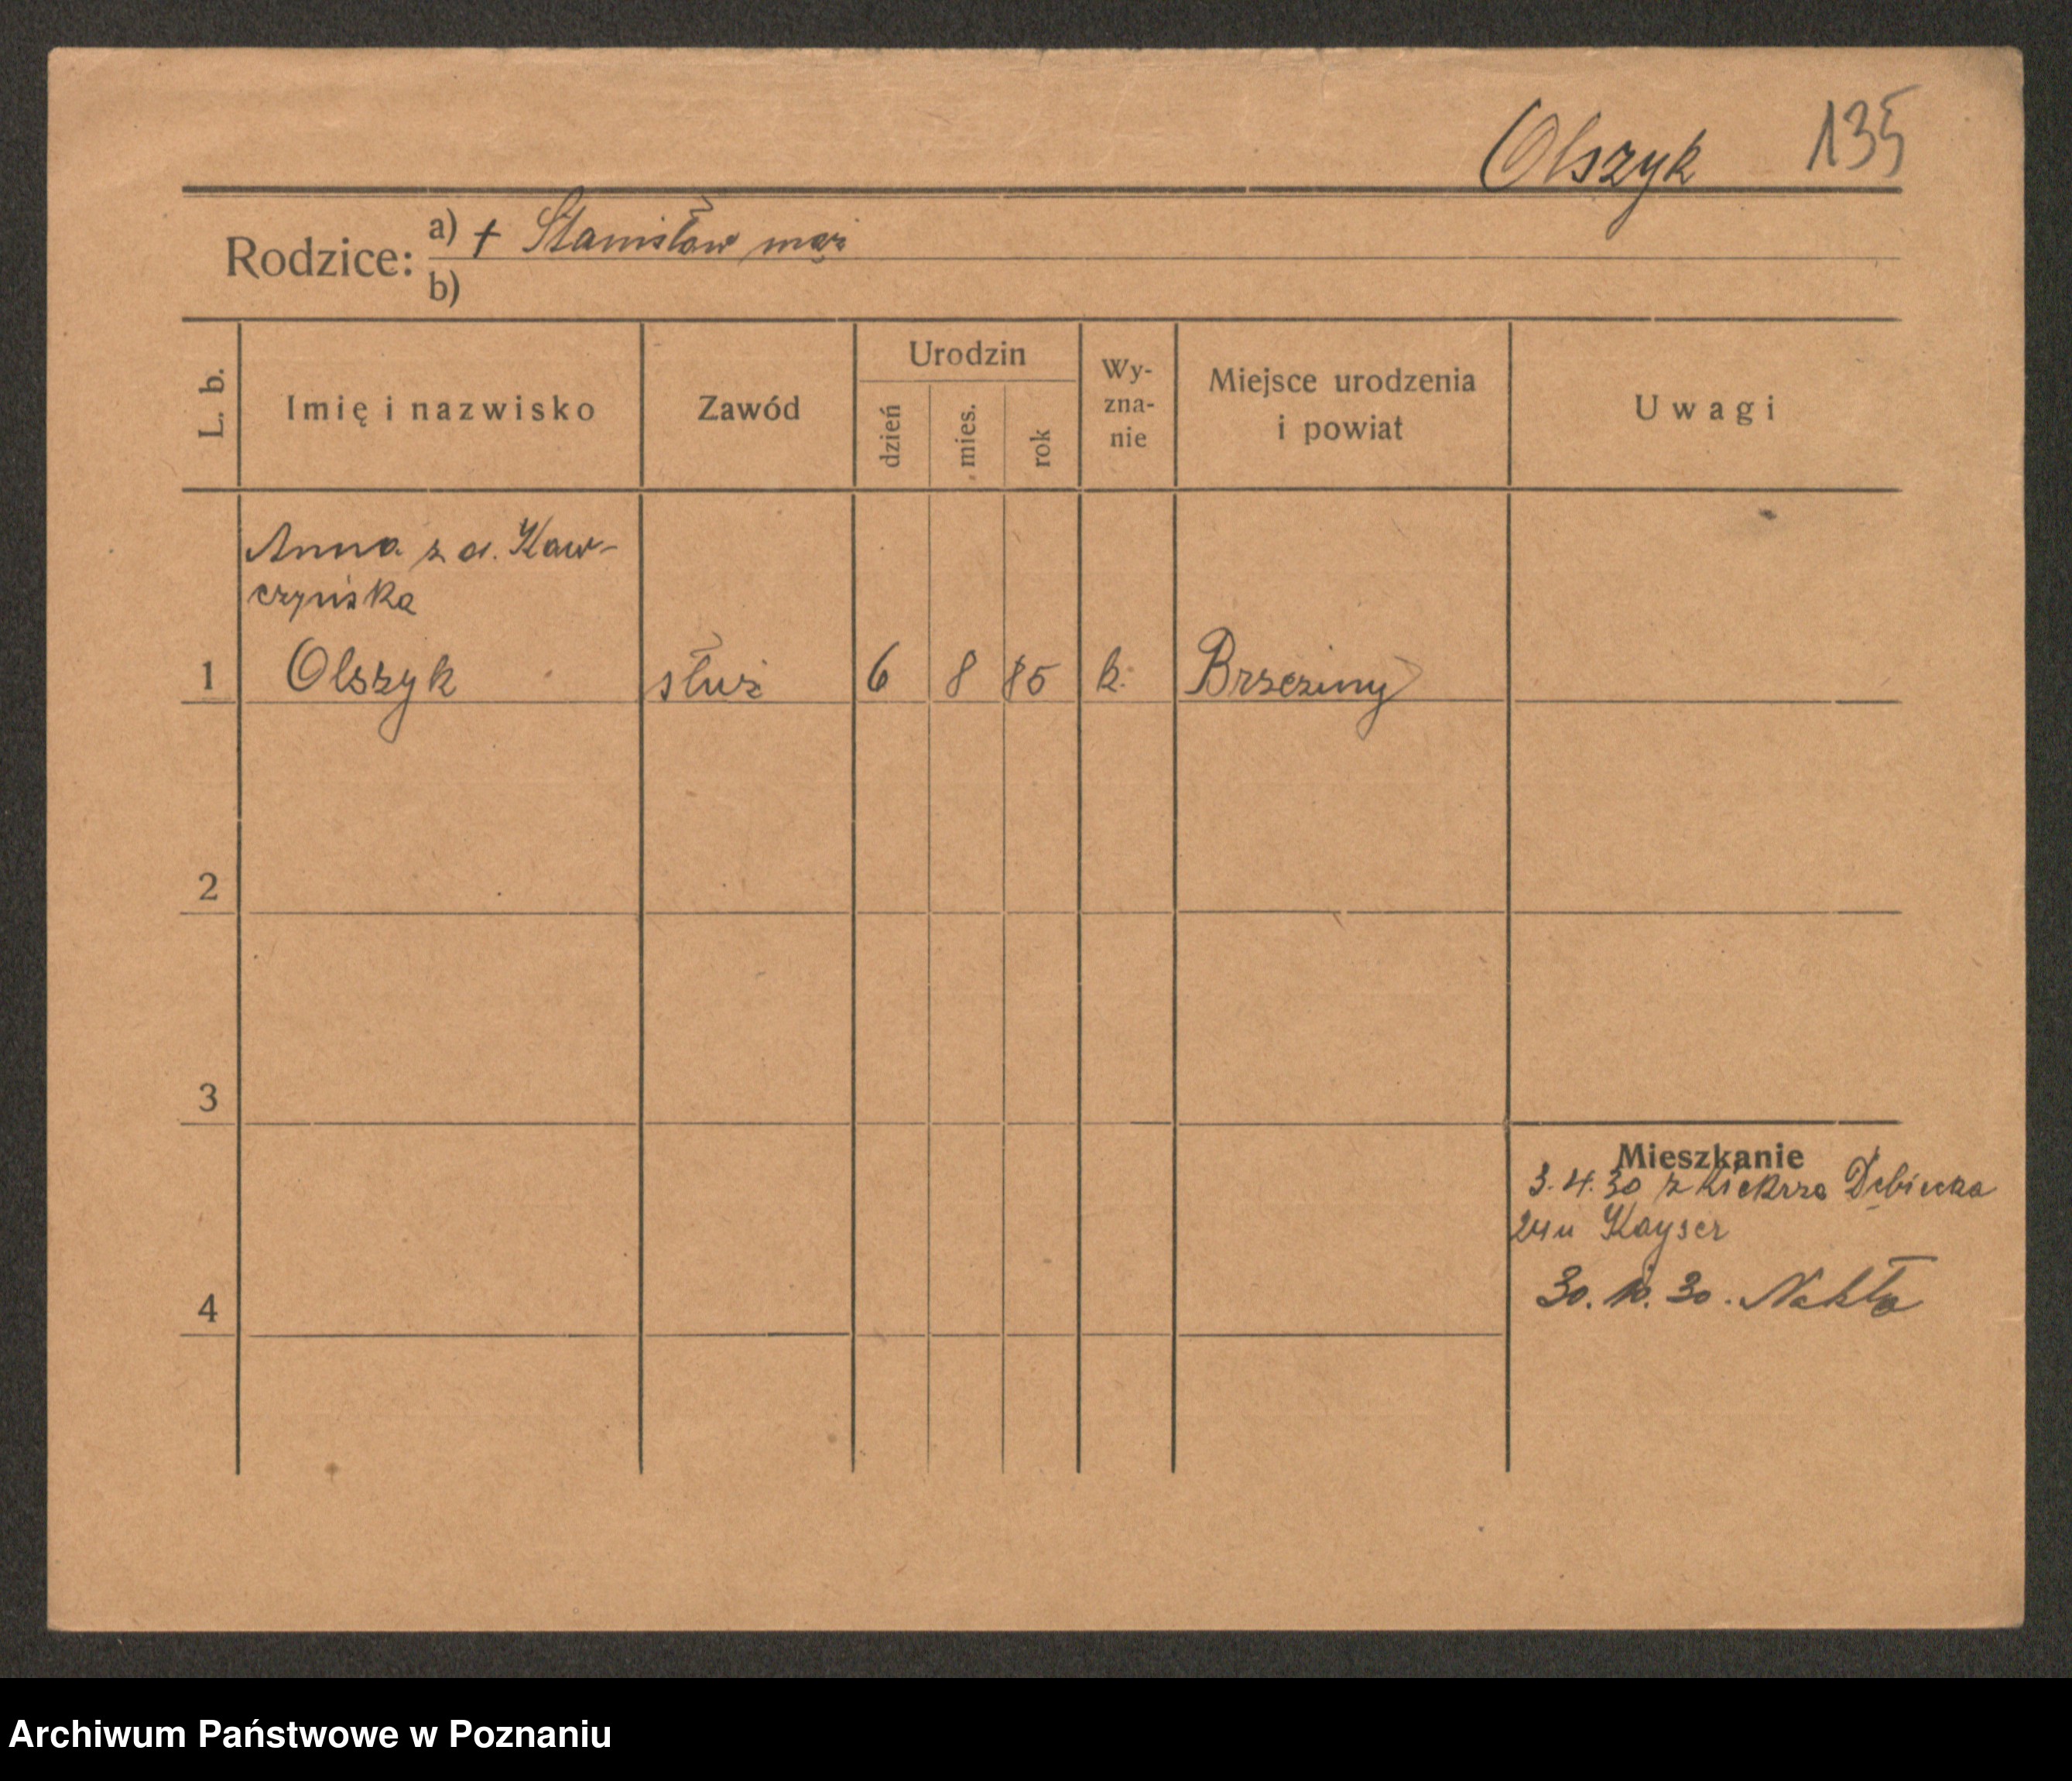 Olszyk 135
Rodzice:
a) + Stanisław mąż
b)
L. b.
Imię i nazwisko
Zawód
Urodzin
dzień
mies.
rok
Wy-
zna-
nie
Miejsce urodzenia
i powiat
Uwagi
Anna z d. Kaw-
czyńska
1 Olszyk służ 6 8 85 k. Brzeziny
2
3
Mieszkanie
3.4.30 z Kiekrza Dębiecka
24 u Kayser
30.10.30. Nakło
4
Archiwum Państwowe w Poznaniu